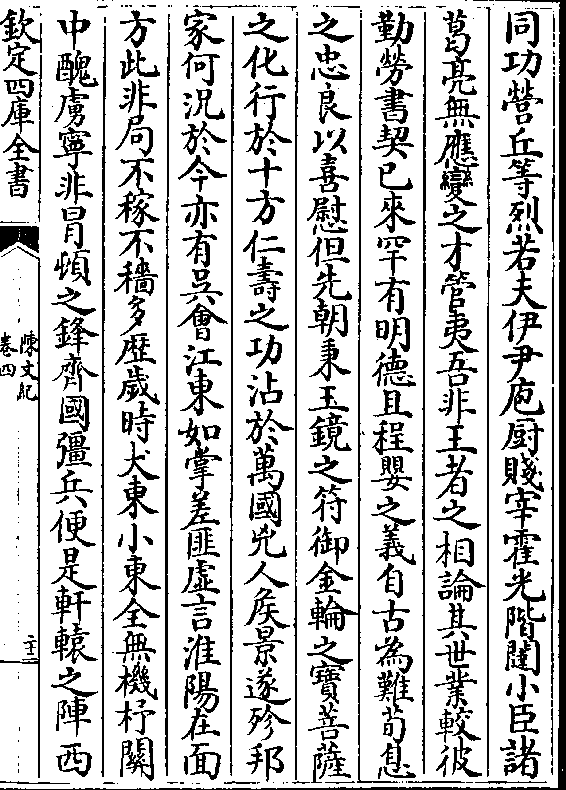 同功營丘等烈若夫伊尹庖厨賤宰霍光階闥小臣諸
葛亮無應變之才管夷吾非王者之相論其世業較彼
勤勞書契已來罕有明德且程嬰之義自古為難荀息
之忠良以喜慰但先朝秉玉鏡之符御金輪之寶菩薩
之化行於十方仁壽之功沾於萬國兇人侯景遂殄邦
家何況於今亦有吳會江東如掌差匪虛言淮陽在面
方此非局不稼不穡多歴歲時大東小東全無機杼關
中醜虜寧非冒頓之鋒齊國彊兵便是軒轅之陣西
欽定四庫全書
陳文紀
卷四
二十二